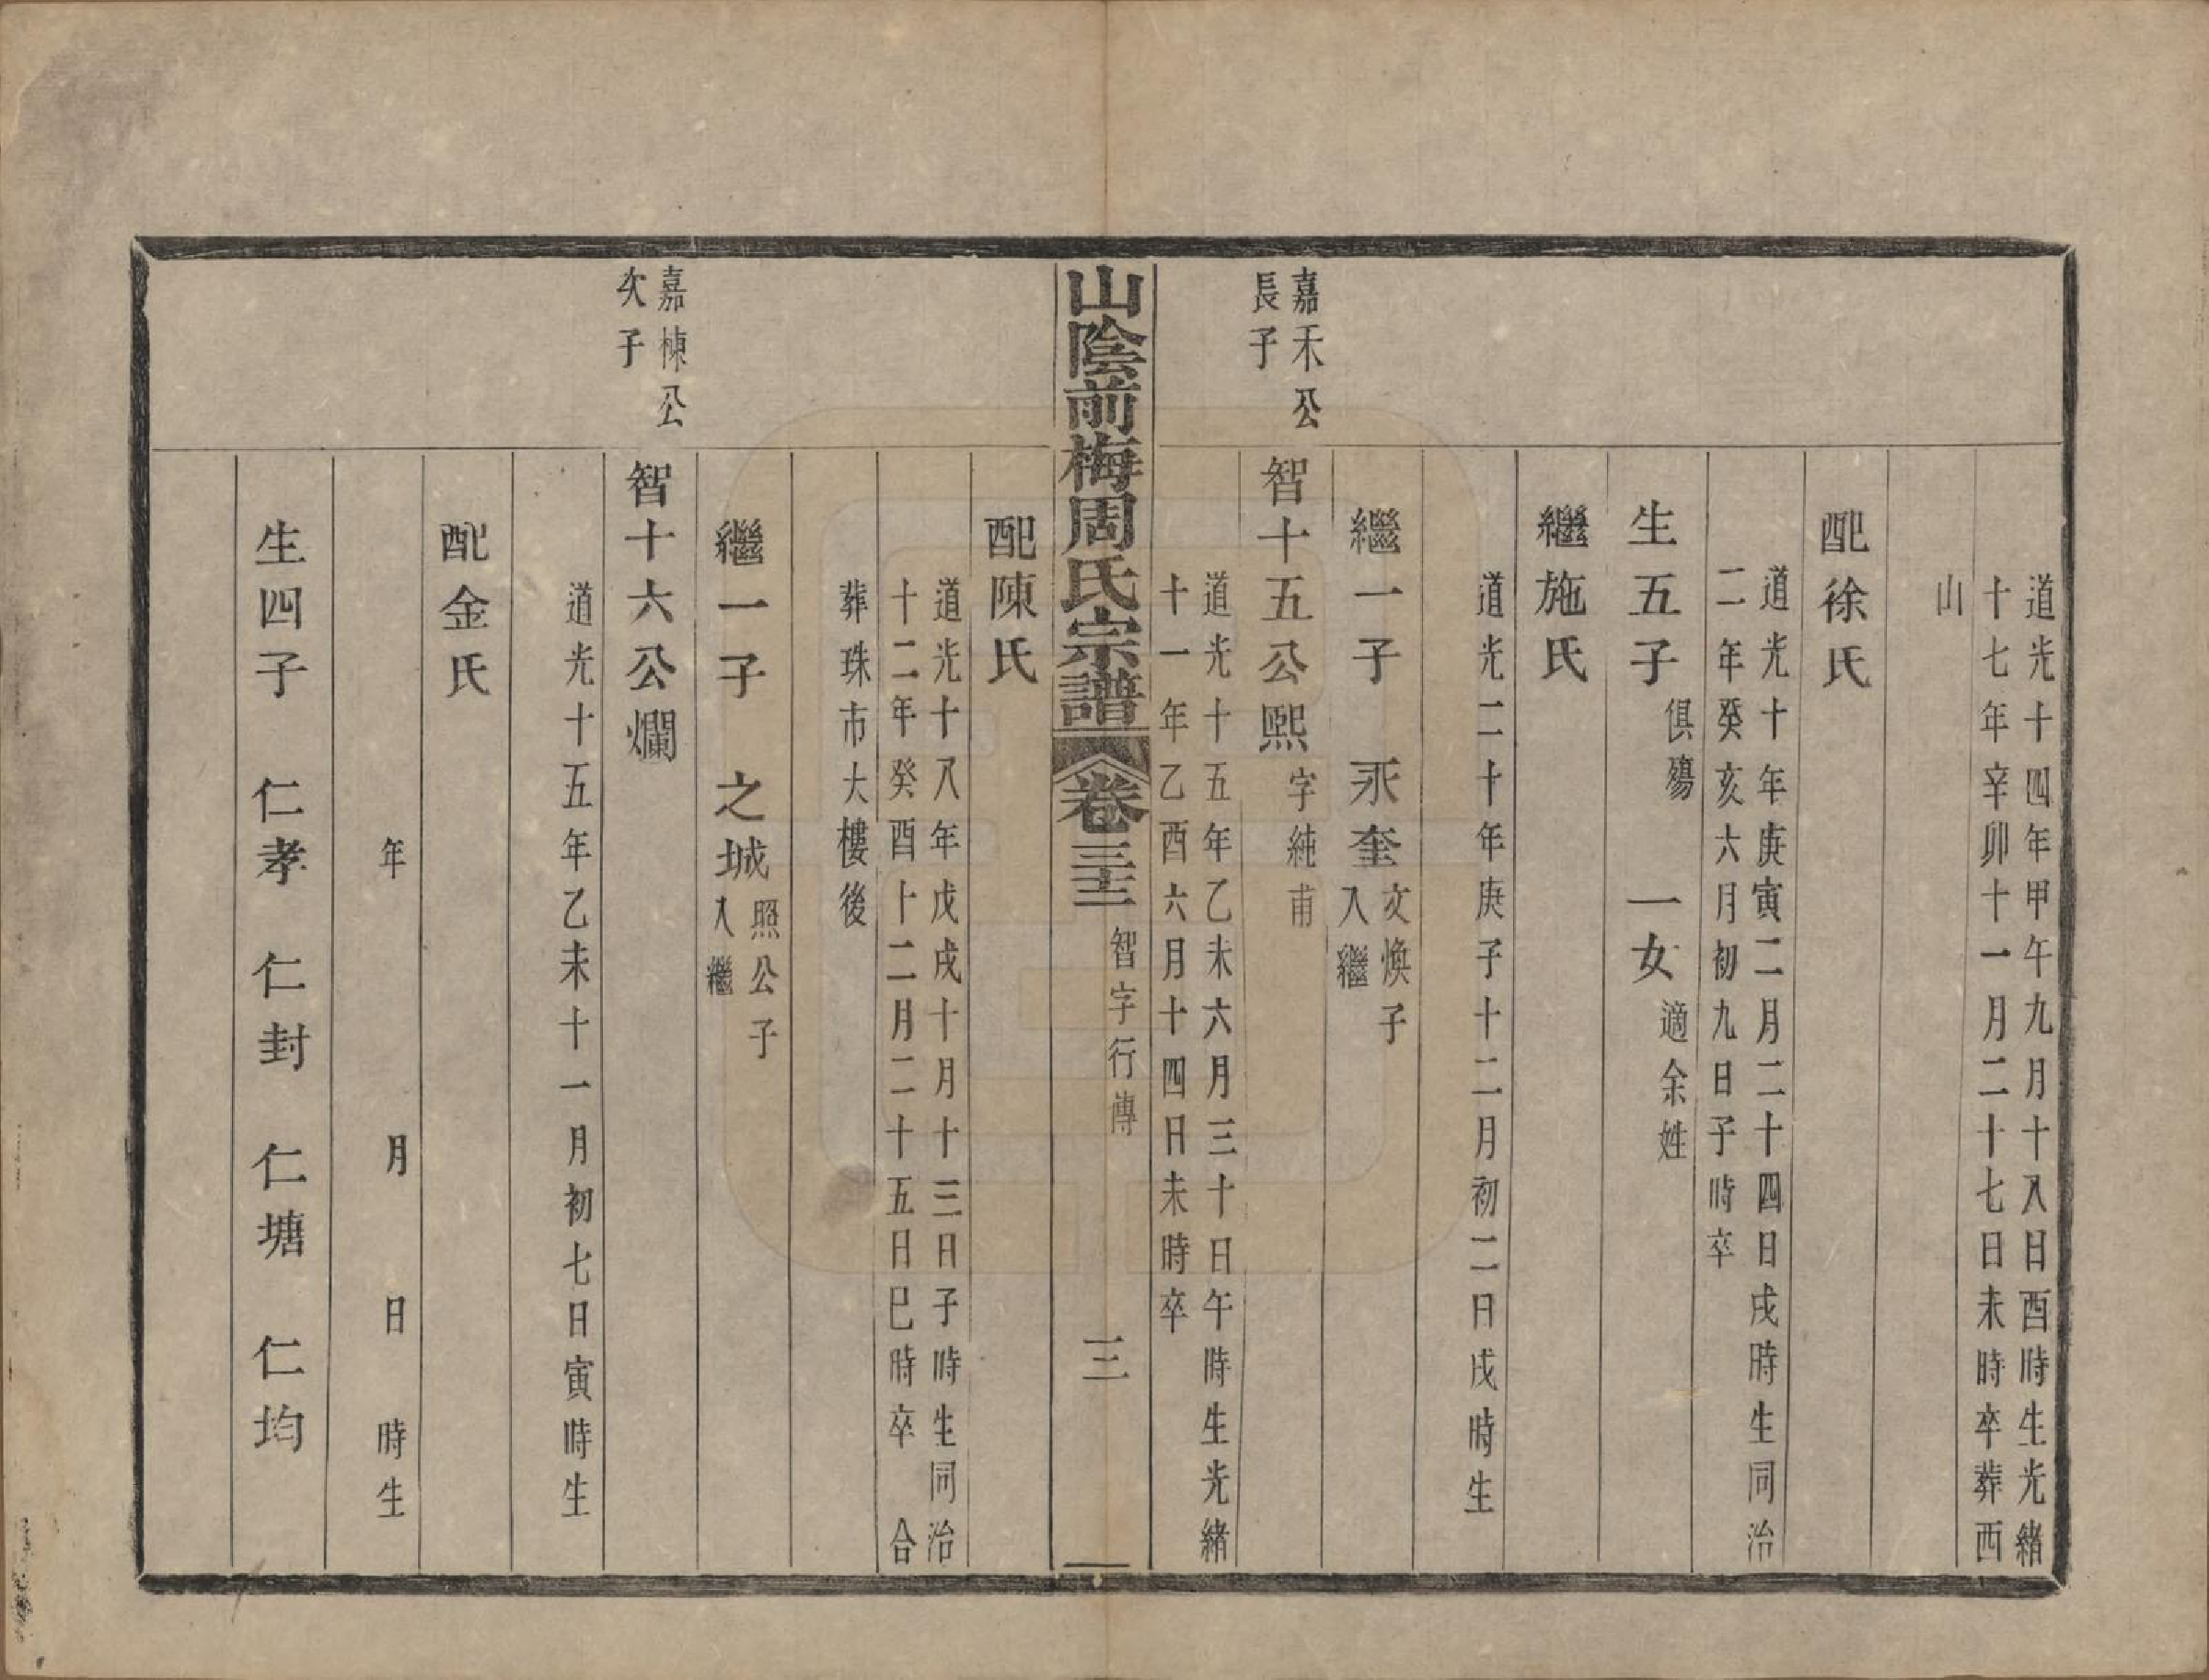 道光十四年甲午九月十八日酉時生光緒
十七年辛卯十一月二十七日未時卒葬西
山
配徐氏
道光十年庚寅二月二十四日戌時生同治
二年癸亥六月初九日子時卒
生五子
俱殤
一女
適余姓
繼施氏
道光二十年庚子十二月初二日戌時生
繼一子
永奎
文煥子
入繼
嘉禾公
長子
智十五公熙
字純甫
道光十五年乙未六月三十日午時生光緒
十一年乙酉六月十四日未時卒
山陰前梅周氏宗譜
卷三十三
智字行傳
三
配陳氏
道光十八年戊戌十月十三日子時生同治
十二年癸酉十二月二十五日巳時卒 合
葬珠市大樓後
繼一子
之城
照公子
入繼
嘉棟公
次子
智十六公爛
道光十五年乙未十一月初七日寅時生
配金氏
年 月 日 時生
生四子 仁孝 仁封 仁塘 仁均